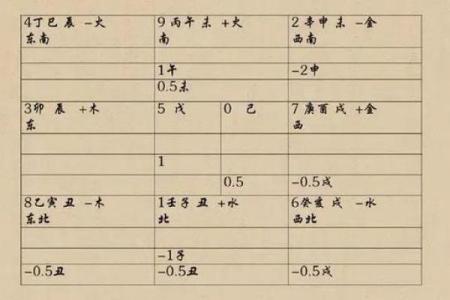 4丁巳 辰 -火 9 丙午 未 +火 2 辛申 未 -金
东南 南 西南
1午 -2申
0.5未
3卯 辰 +木 5 戊 0 己 7 庚酉戌 +金
东 西
1
0.5 -0.5戌
8乙寅 丑 -木 1壬子 丑 +水 6癸亥 戌 -水
东北 北 西北
-1子
-0.5丑 -0.5丑 -0.5戌